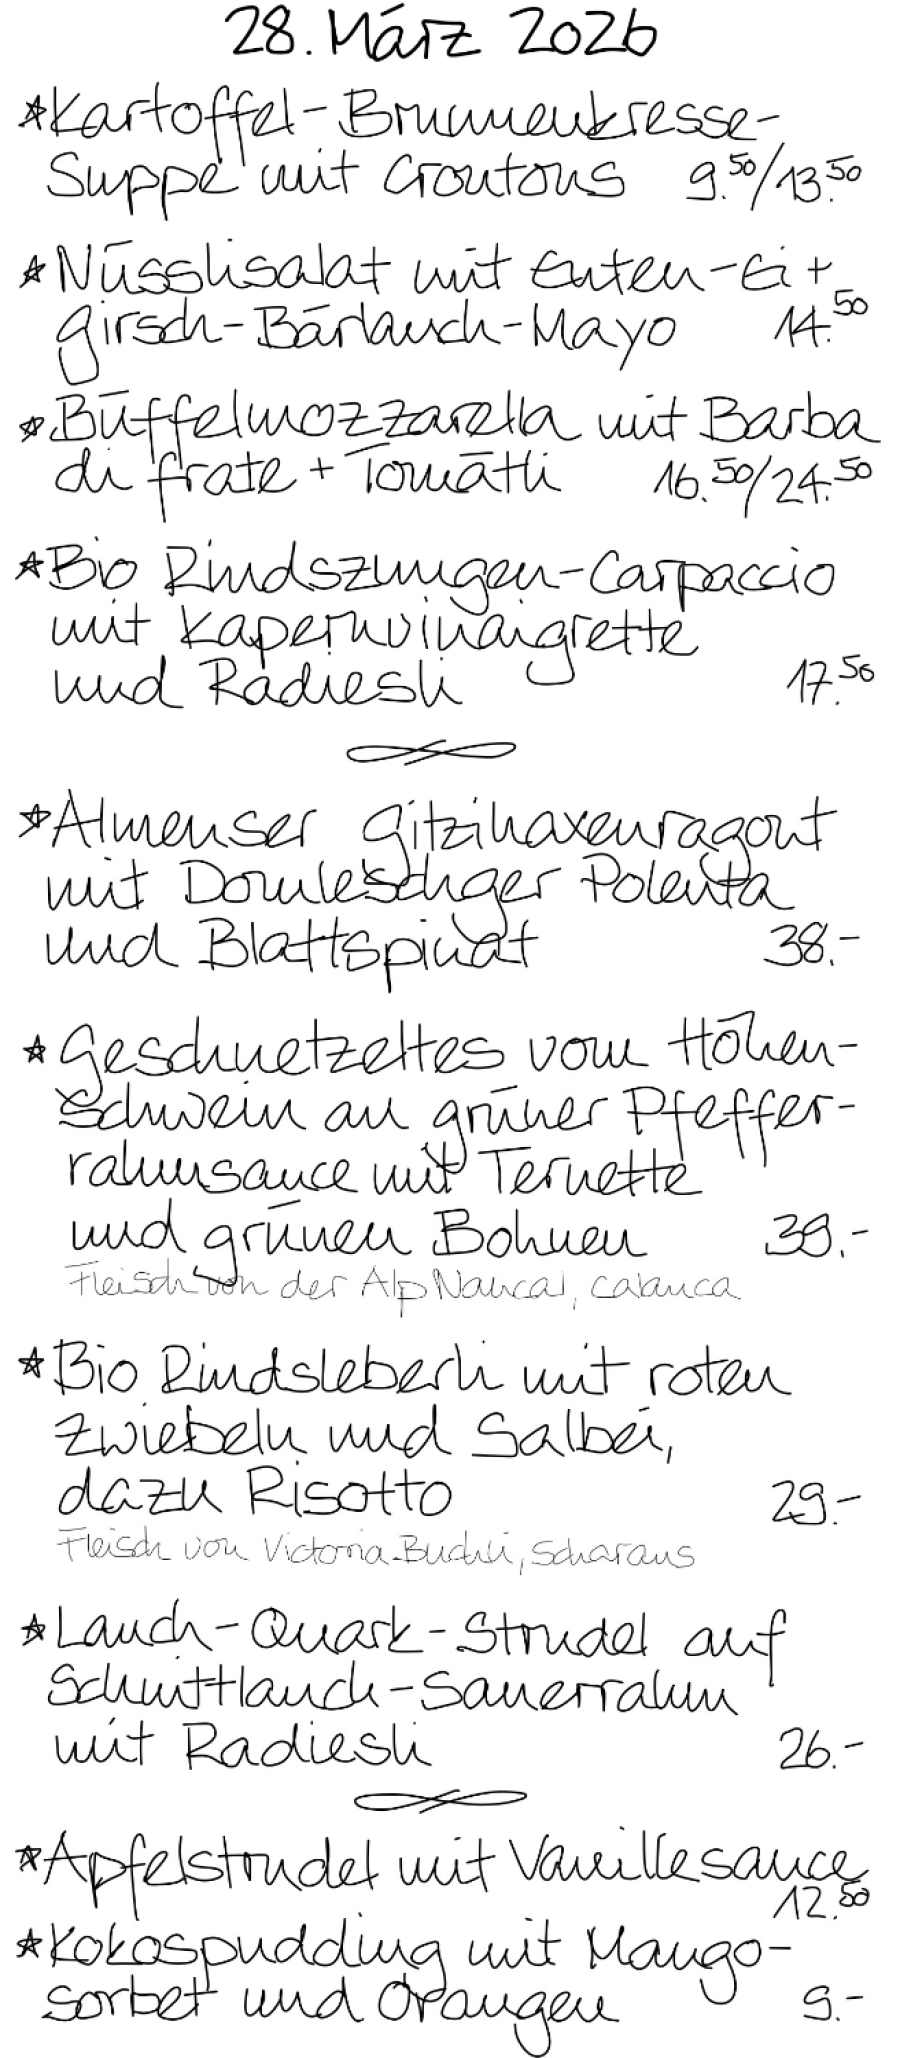 28. März 2026
*Kartoffel-Brunnenkresse-
Suppe mit Croutons 9.50/13.50
*Nüsslisalat mit Enten-Ei +
Girsch-Bärlauch-Mayo 14.50
*Büffelmozzarella mit Barba
di frate + Tomätli 16.50/24.50
*Bio Rindszungen-Carpaccio
mit Kapernvinaigrette
und Radiesli 17.50
*Almenser Gitzihaxenragout
mit Domleschger Polenta
und Blattspinat 38.-
*Geschnetzeltes vom Höhen-
Schwein an grüner Pfeffer-
rahmsauce mit Ternette
und grünen Bohnen 39.-
Fleisch von der Alp Naucal, Calanca
*Bio Rindsleberli mit roten
Zwiebeln und Salbei,
dazu Risotto 29.-
Fleisch von Victoria Buchli, Scharans
*Lauch-Quark-Strudel auf
Schnittlauch-Sauerrahm
mit Radiesli 26.-
*Apfelstrudel mit Vanillesauce
12.50
*Kokospudding mit Mango-
sorbet und Orangen 9.-